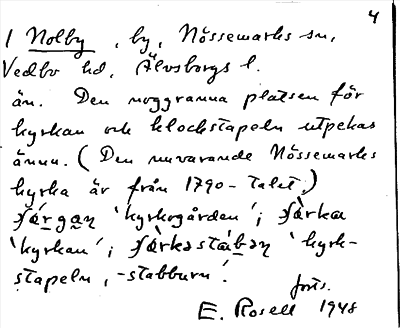 4
I Nolby, by, Nössemarks sn,
Vedbo hd, Älvsborgs l.
än. Den noggranna platsen för
kyrkan och klockstapeln utpekas
ännu. (Den nuvarande Nössemarks
kyrka är från 1790-talet.)
'kyrkogården';
'kyrkan'; 'kyrk-
stapeln, -stabburn'.
forts.
E. Rosell 1948